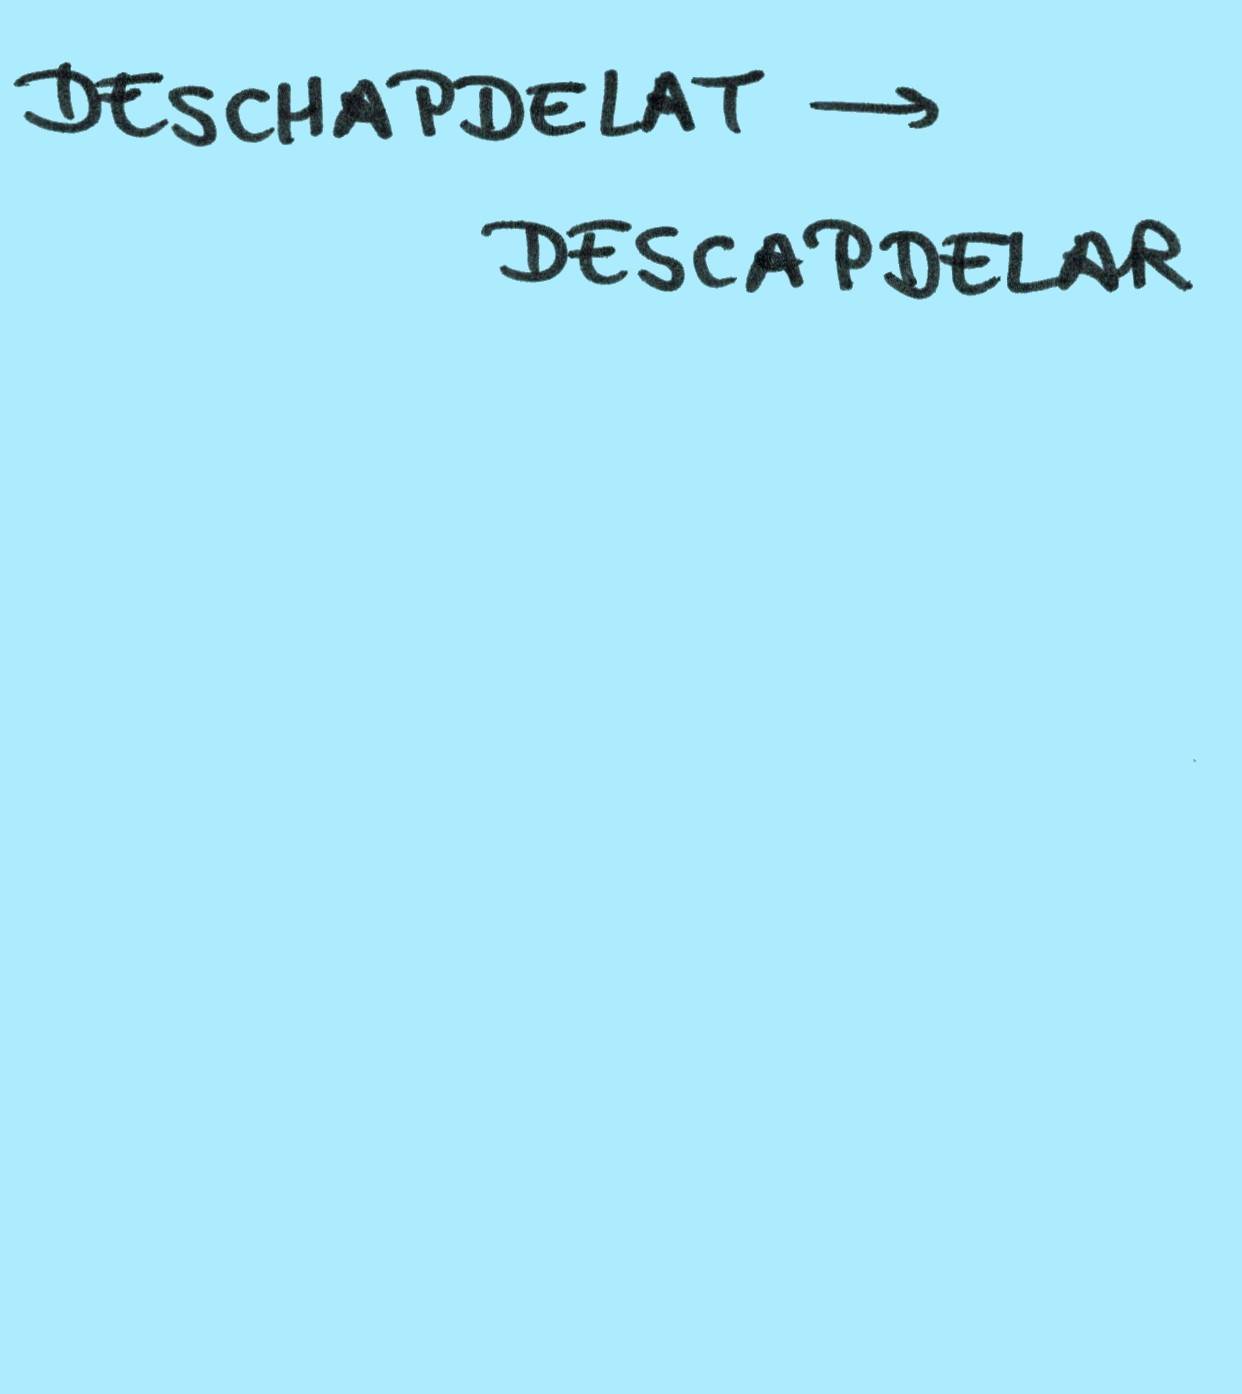 DESCHAPDELAT →
DESCAPDELAR